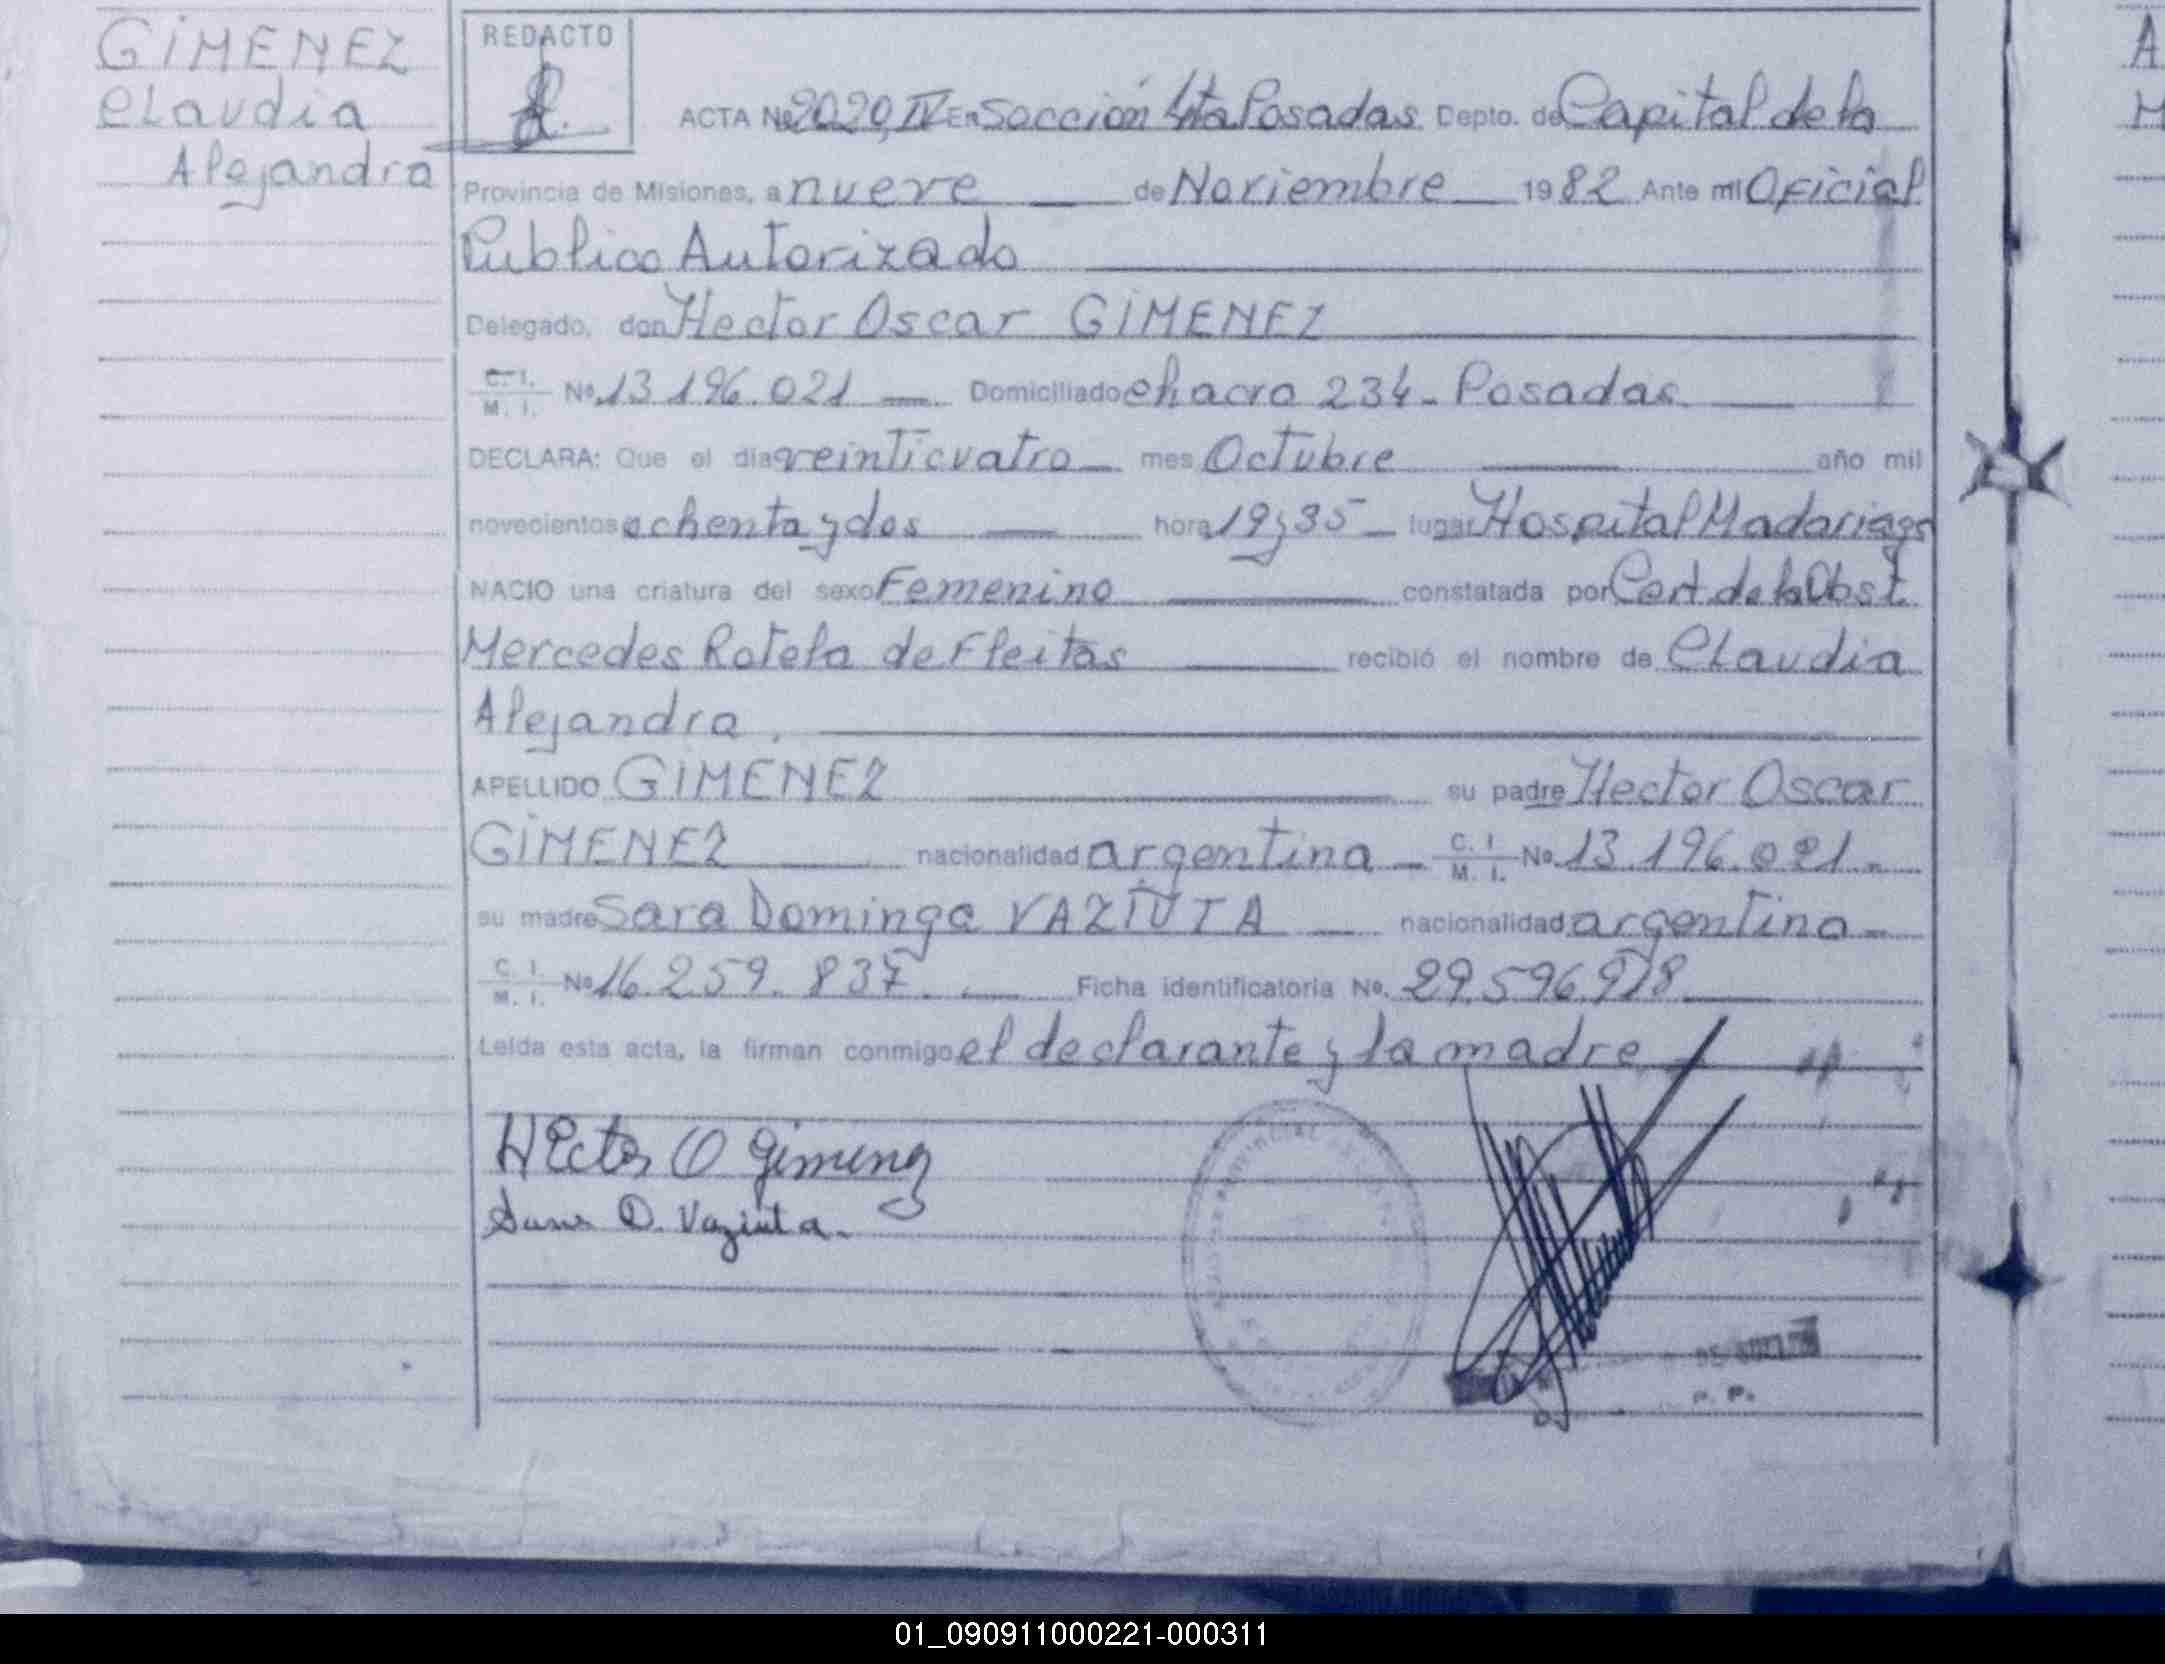 GIMENEZ
Claudia
Alejandra
REDACTO
ACTA Nº 2020, IV En Sección 4ta Posadas Depto. de Capital de la
Provincia de Misiones, a nueve de Noviembre 1982 Ante mi Oficial
Publico Autorizado
Delegado, don Hector Oscar GIMENEZ
C. I. M. I. Nº 13.196.021 Domiciliado chacra 234 - Posadas
DECLARA: Que el día veinticuatro mes Octubre año mil
novecientos ochenta y dos hora 19,35 lugar Hospital Madariaga
NACIO una criatura del sexo Femenino constatada por Cert. de la Obst.
Mercedes Rotela de Fleitas recibió el nombre de Claudia
Alejandra.
APELLIDO GIMENEZ su padre Hector Oscar
GIMENEZ nacionalidad argentina C. I. M. I. Nº 13.196.021.
su madre Sara Dominga VAZIUTA nacionalidad argentina
C. I. M. I. Nº 16.259.837. Ficha identificatoria Nº. 29.596.978
Leída esta acta, la firman conmigo el declarante y la madre
Hector O Gimenez
Sara D. Vaziuta.
P. P.
A
M
01_090911000221-000311